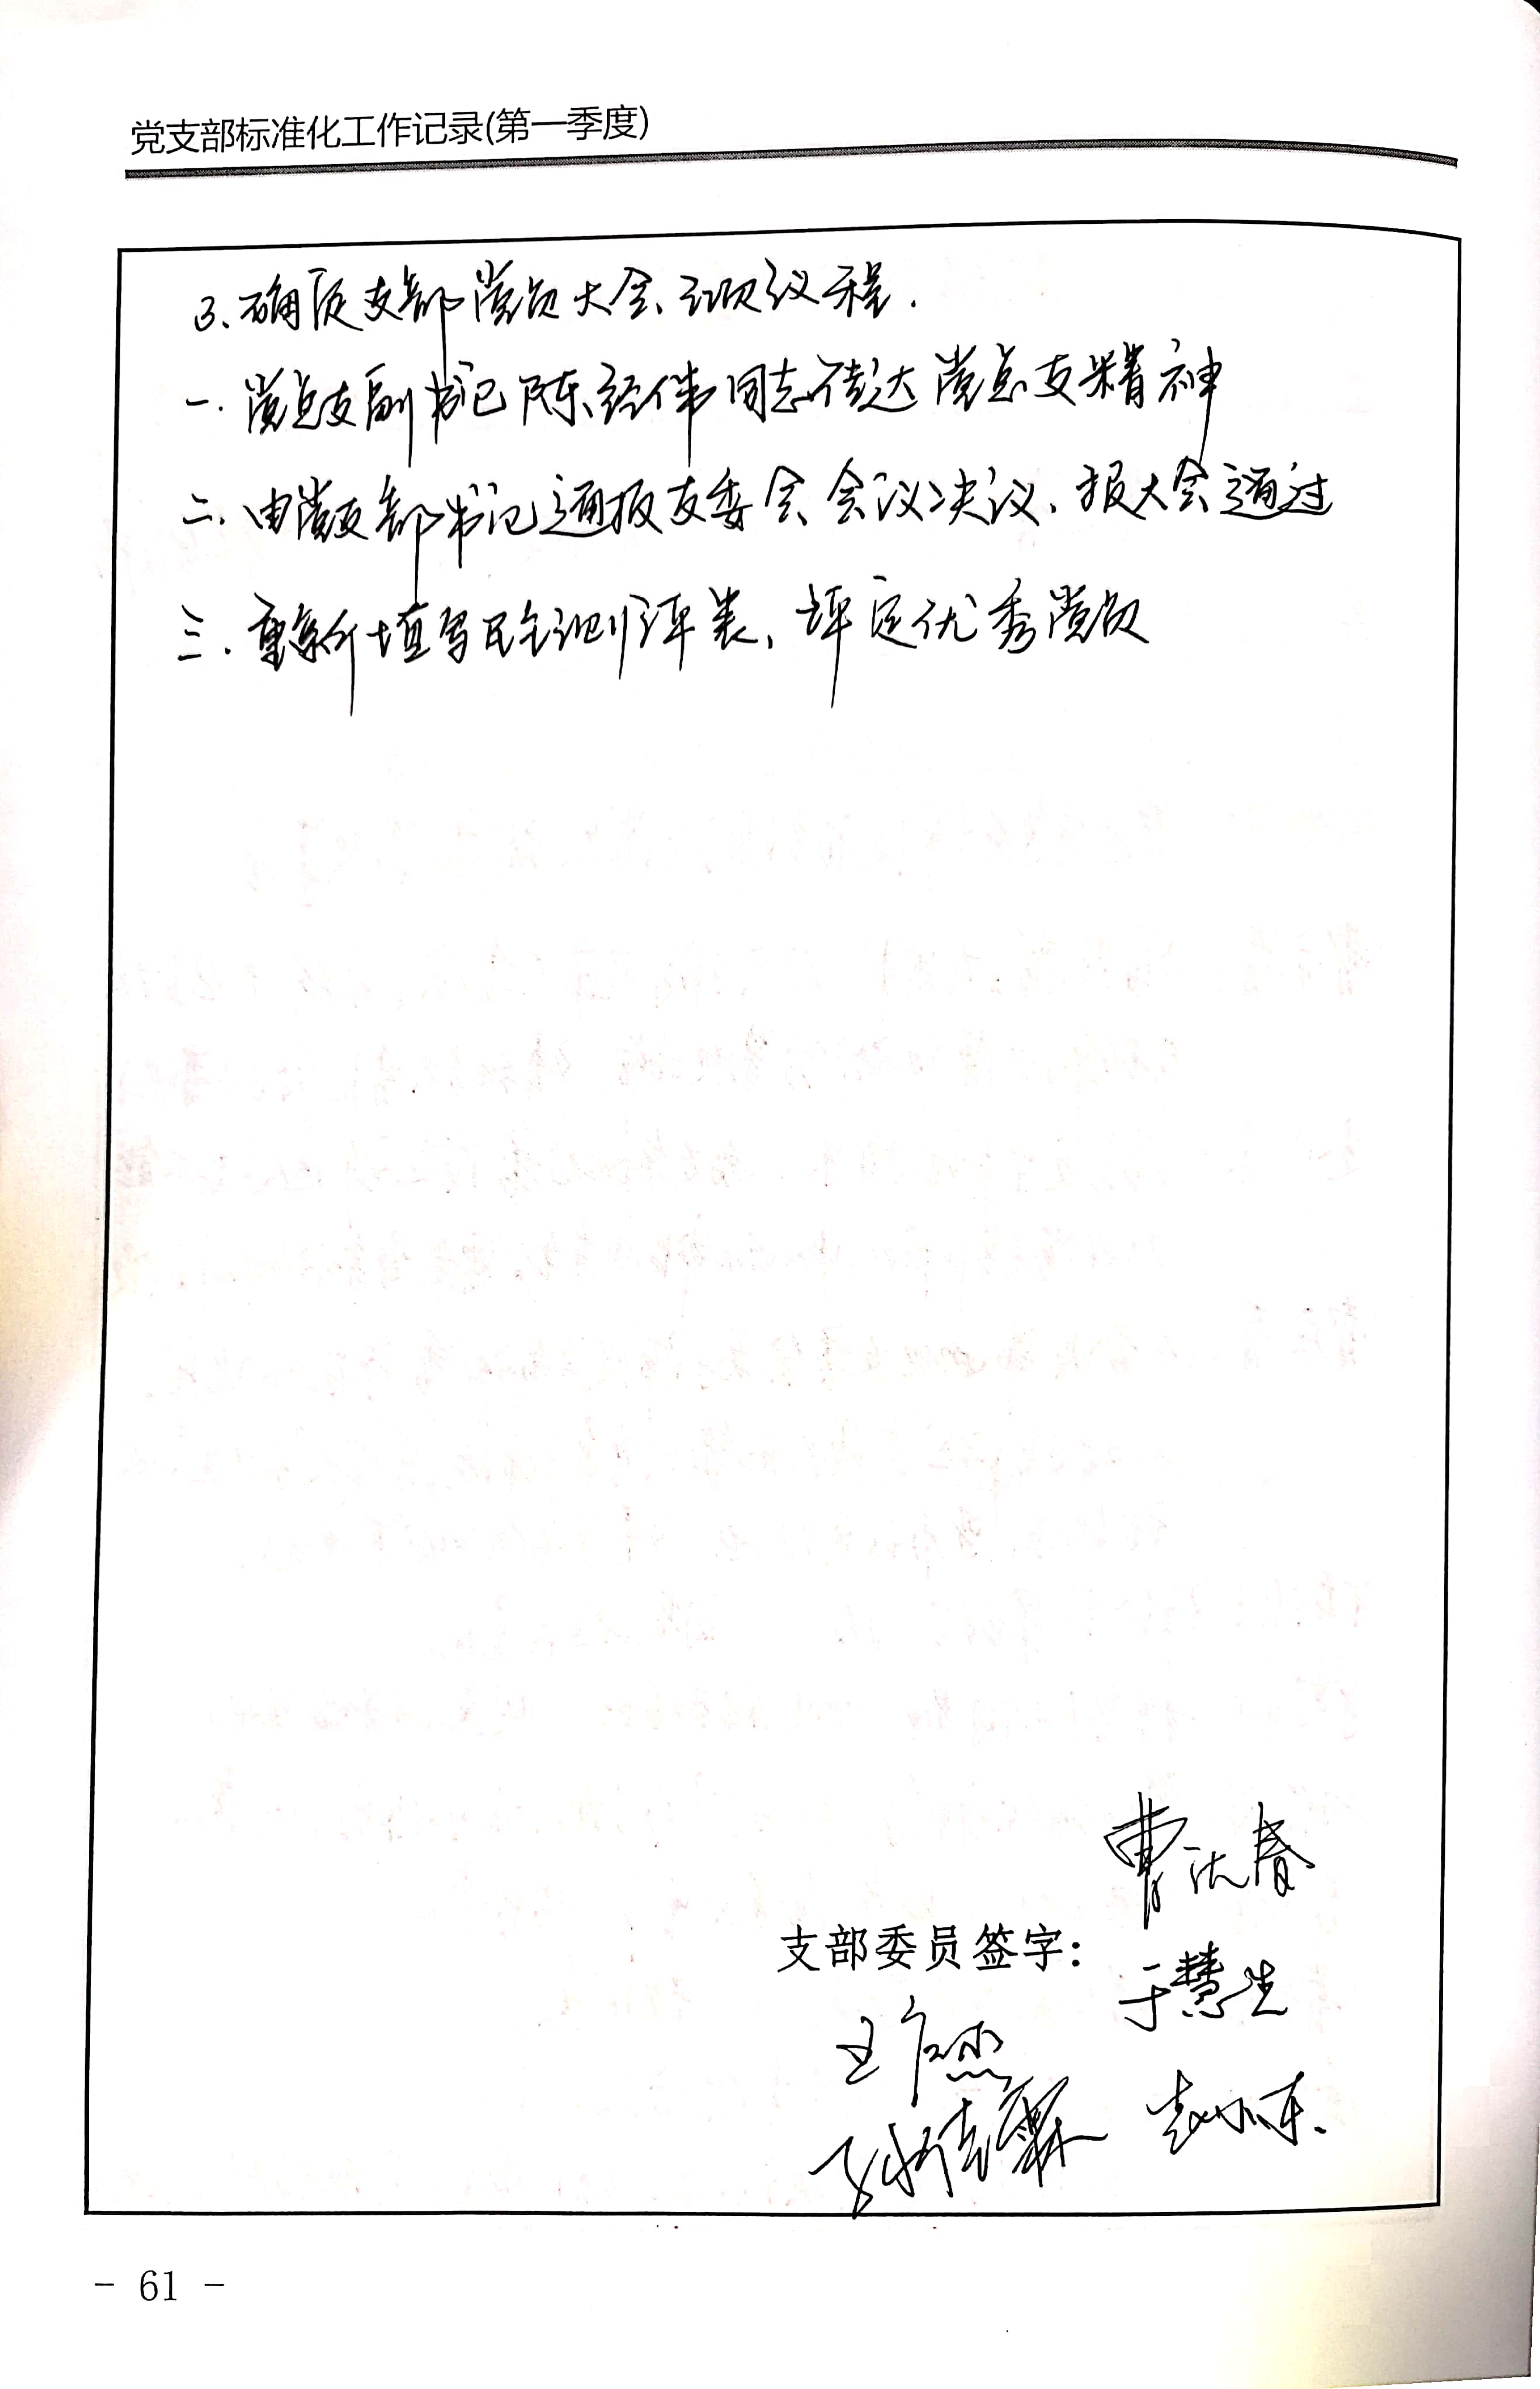 党支部标准化工作记录(第一季度)
3、确定支部党员大会、议程.
一.党总支副书记陈经伟同志传达党总支精神
二.由党支部书记通报支委会会议决议、报大会通过
三.重新填写民主测评表、评定优秀党员
曹 春
支部委员签字:
于慧生
王 杰
赵小东.
- 61 -